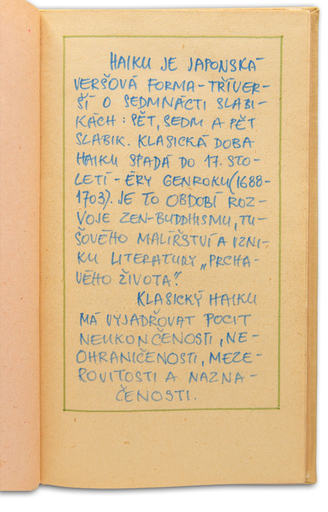 HAIKU JE JAPONSKÁ
VERŠOVÁ FORMA - TŘÍVER-
ŠÍ O SEDMNÁCTI SLABI-
KÁCH: PĚT, SEDM A PĚT
SLABIK. KLASICKÁ DOBA
HAIKU SPADÁ DO 17. STO-
LETÍ - ÉRY GENROKU (1688-
1703). JE TO OBDOBÍ ROZ-
VOJE ZEN-BUDDHISMU, TU-
ŠOVÉHO MALÍŘSTVÍ A VZNI-
KU LITERATURY „PRCHA-
VÉHO ŽIVOTA“.
KLASICKÝ HAIKU
MÁ VYJADŘOVAT POCIT
NEUKONČENOSTI, NE-
OHRANIČENOSTI, MEZE-
ROVITOSTI A NAZNA-
ČENOSTI.